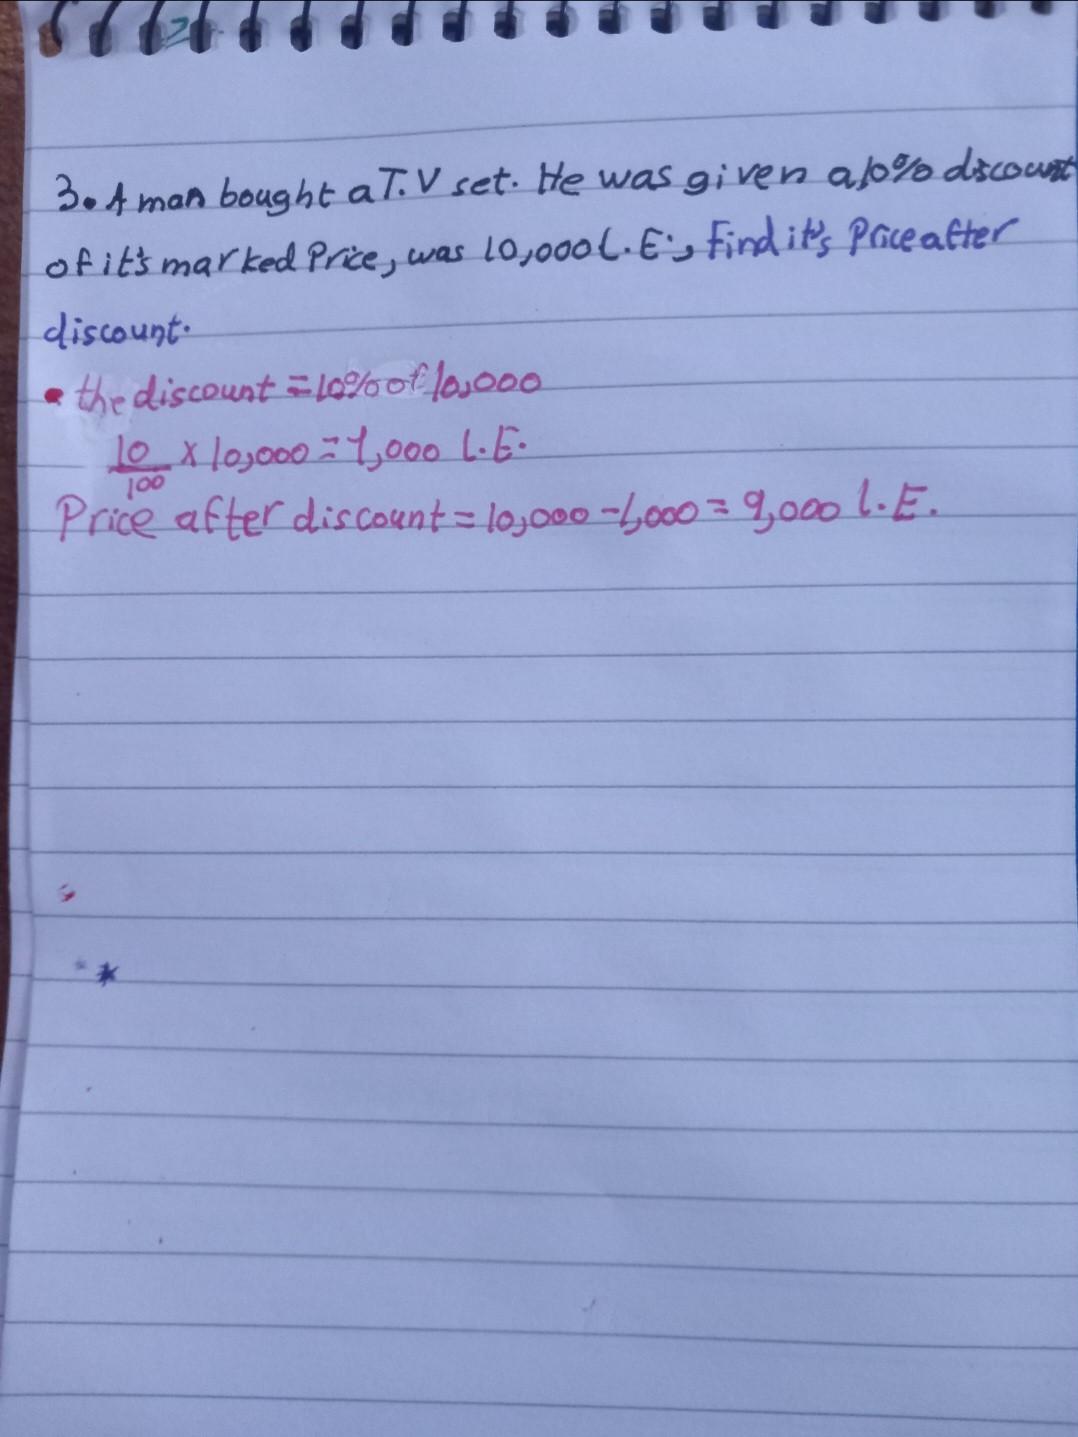 3. A man bought a T.V set. He was given a 10% discount
of it's marked Price, was 10,000 L.E., Find it's Price after
discount.
• the discount = 10% of 10,000
10/100 × 10,000 = 1,000 L.E.
Price after discount = 10,000 - 1,000 = 9,000 L.E.